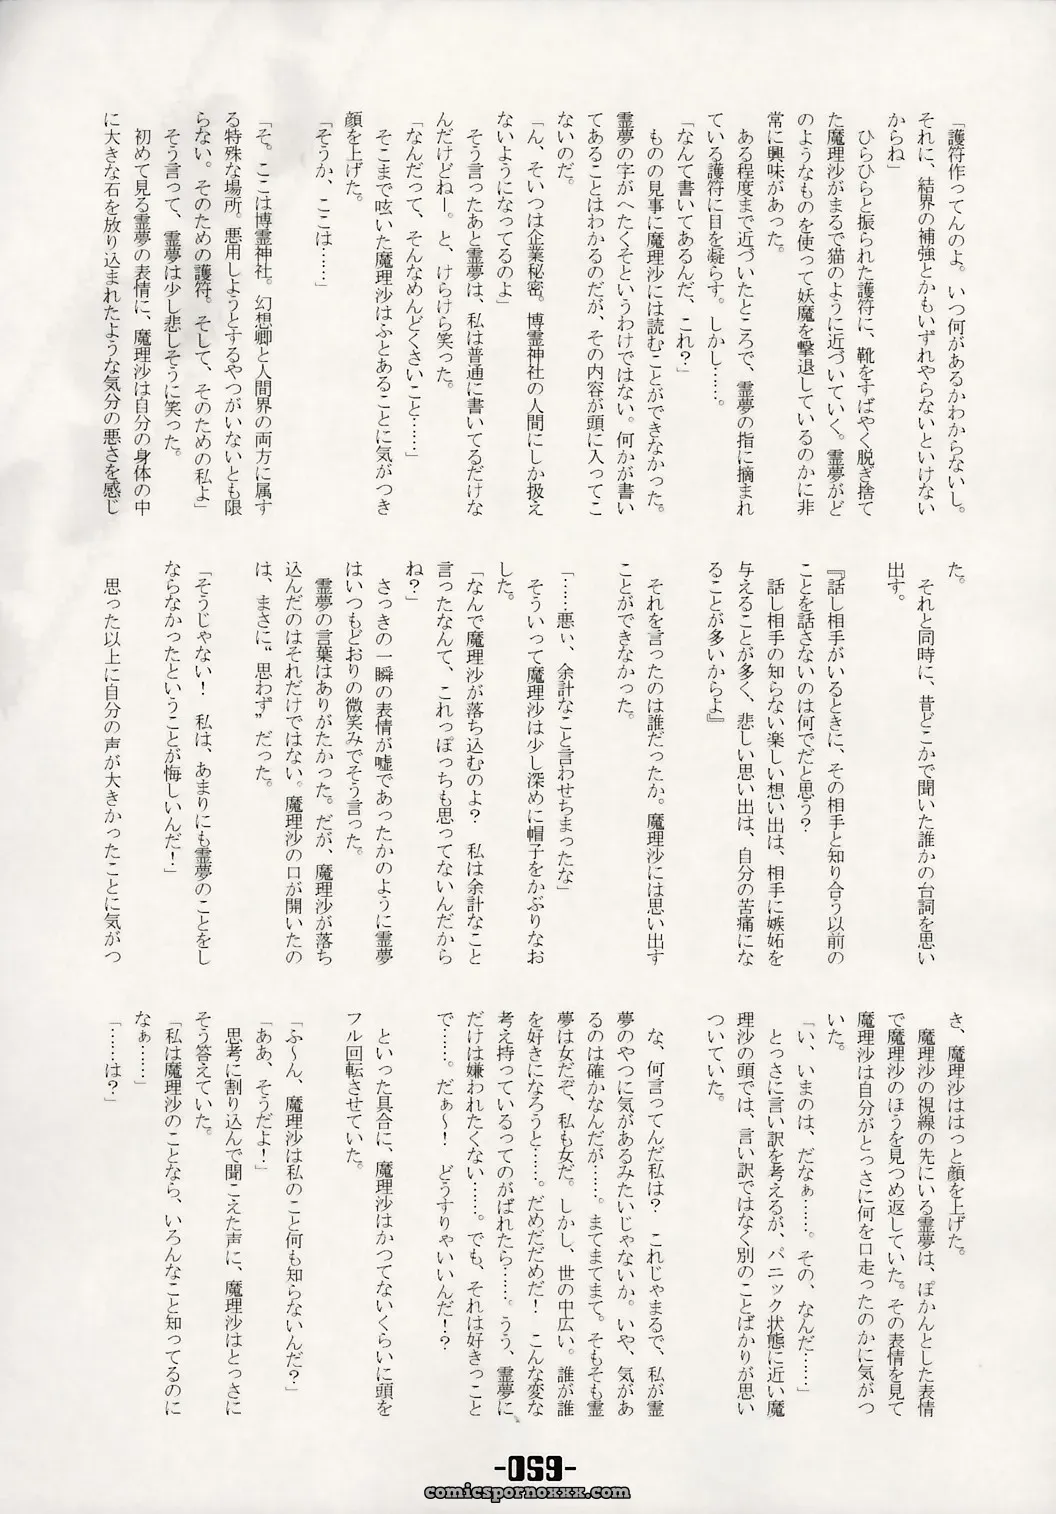 「護符作ってんのよ。いつ何があるかわからないし。
それに、結界の補強とかもいずれやらないといけない
からね」
　ひらひらと振られた護符に、靴をすばやく脱ぎ捨て
た魔理沙がまるで猫のように近づいていく。霊夢がど
のようなものを使って妖魔を撃退しているのかに非
常に興味があった。
　ある程度まで近づいたところで、霊夢の指に摘まれ
ている護符に目を凝らす。しかし……。
「なんて書いてあるんだ、これ？」
　ものの見事に魔理沙には読むことができなかった。
霊夢の字がへたくそというわけではない。何かが書い
てあることはわかるのだが、その内容が頭に入ってこ
ないのだ。
「ん、そいつは企業秘密。博霊神社の人間にしか扱え
ないようになってるのよ」
　そう言ったあと霊夢は、私は普通に書いてるだけな
んだけどねー。と、けらけら笑った。
「なんだって、そんなめんどくさいこと……」
　そこまで呟いた魔理沙はふとあることに気がつき
顔を上げた。
「そうか、ここは……」
「そ。ここは博霊神社。幻想郷と人間界の両方に属す
る特殊な場所。悪用しようとするやつがいないとも限
らない。そのための護符。そして、そのための私よ」
　そう言って、霊夢は少し悲しそうに笑った。
　初めて見る霊夢の表情に、魔理沙は自分の身体の中
に大きな石を放り込まれたような気分の悪さを感じ
た。
　それと同時に、昔どこかで聞いた誰かの台詞を思い
出す。
『話し相手がいるときに、その相手と知り合う以前の
ことを話さないのは何でだと思う？
　話し相手の知らない楽しい想い出は、相手に嫉妬を
与えることが多く、悲しい思い出は、自分の苦痛にな
ることが多いからよ』
　それを言ったのは誰だったか。魔理沙には思い出す
ことができなかった。
「……悪ぃ、余計なこと言わせちまったな」
　そういって魔理沙は少し深めに帽子をかぶりなお
した。
「なんで魔理沙が落ち込むのよ？　私は余計なこと
言ったなんて、これっぽっちも思ってないんだから
ね？」
　さっきの一瞬の表情が嘘であったかのように霊夢
はいつもどおりの微笑みでそう言った。
　霊夢の言葉はありがたかった。だが、魔理沙が落ち
込んだのはそれだけではない。魔理沙の口が開いたの
は、まさに“思わず”だった。
「そうじゃない！　私は、あまりにも霊夢のことをし
ならなかったということが悔しいんだ！」
　思った以上に自分の声が大きかったことに気がつ
き、魔理沙ははっと顔を上げた。
　魔理沙の視線の先にいる霊夢は、ぽかんとした表情
で魔理沙のほうを見つめ返していた。その表情を見て
魔理沙は自分がとっさに何を口走ったのかに気がつ
いた。
「い、いまのは、だなぁ……。その、なんだ……」
　とっさに言い訳を考えるが、パニック状態に近い魔
理沙の頭では、言い訳ではなく別のことばかりが思い
ついていた。
　な、何言ってんだ私は？　これじゃまるで、私が霊
夢のやつに気があるみたいじゃないか。いや、気があ
るのは確かなんだが……。まてまてまて。そもそも霊
夢は女だぞ、私も女だ。しかし、世の中広い。誰が誰
を好きになろうと……。だめだだめだ！　こんな変な
考え持っているってのがばれたら……。うう、霊夢に
だけは嫌われたくない……。でも、それは好きっこと
で……。だぁ～！　どうすりゃいいんだ！？
　といった具合に、魔理沙はかつてないくらいに頭を
フル回転させていた。
「ふ～ん、魔理沙は私のこと何も知らないんだ？」
「ああ、そうだよ！」
　思考に割り込んで聞こえた声に、魔理沙はとっさに
そう答えていた。
「私は魔理沙のことなら、いろんなこと知ってるのに
なぁ……」
「……は？」
-059-
comicspornoxxx.com